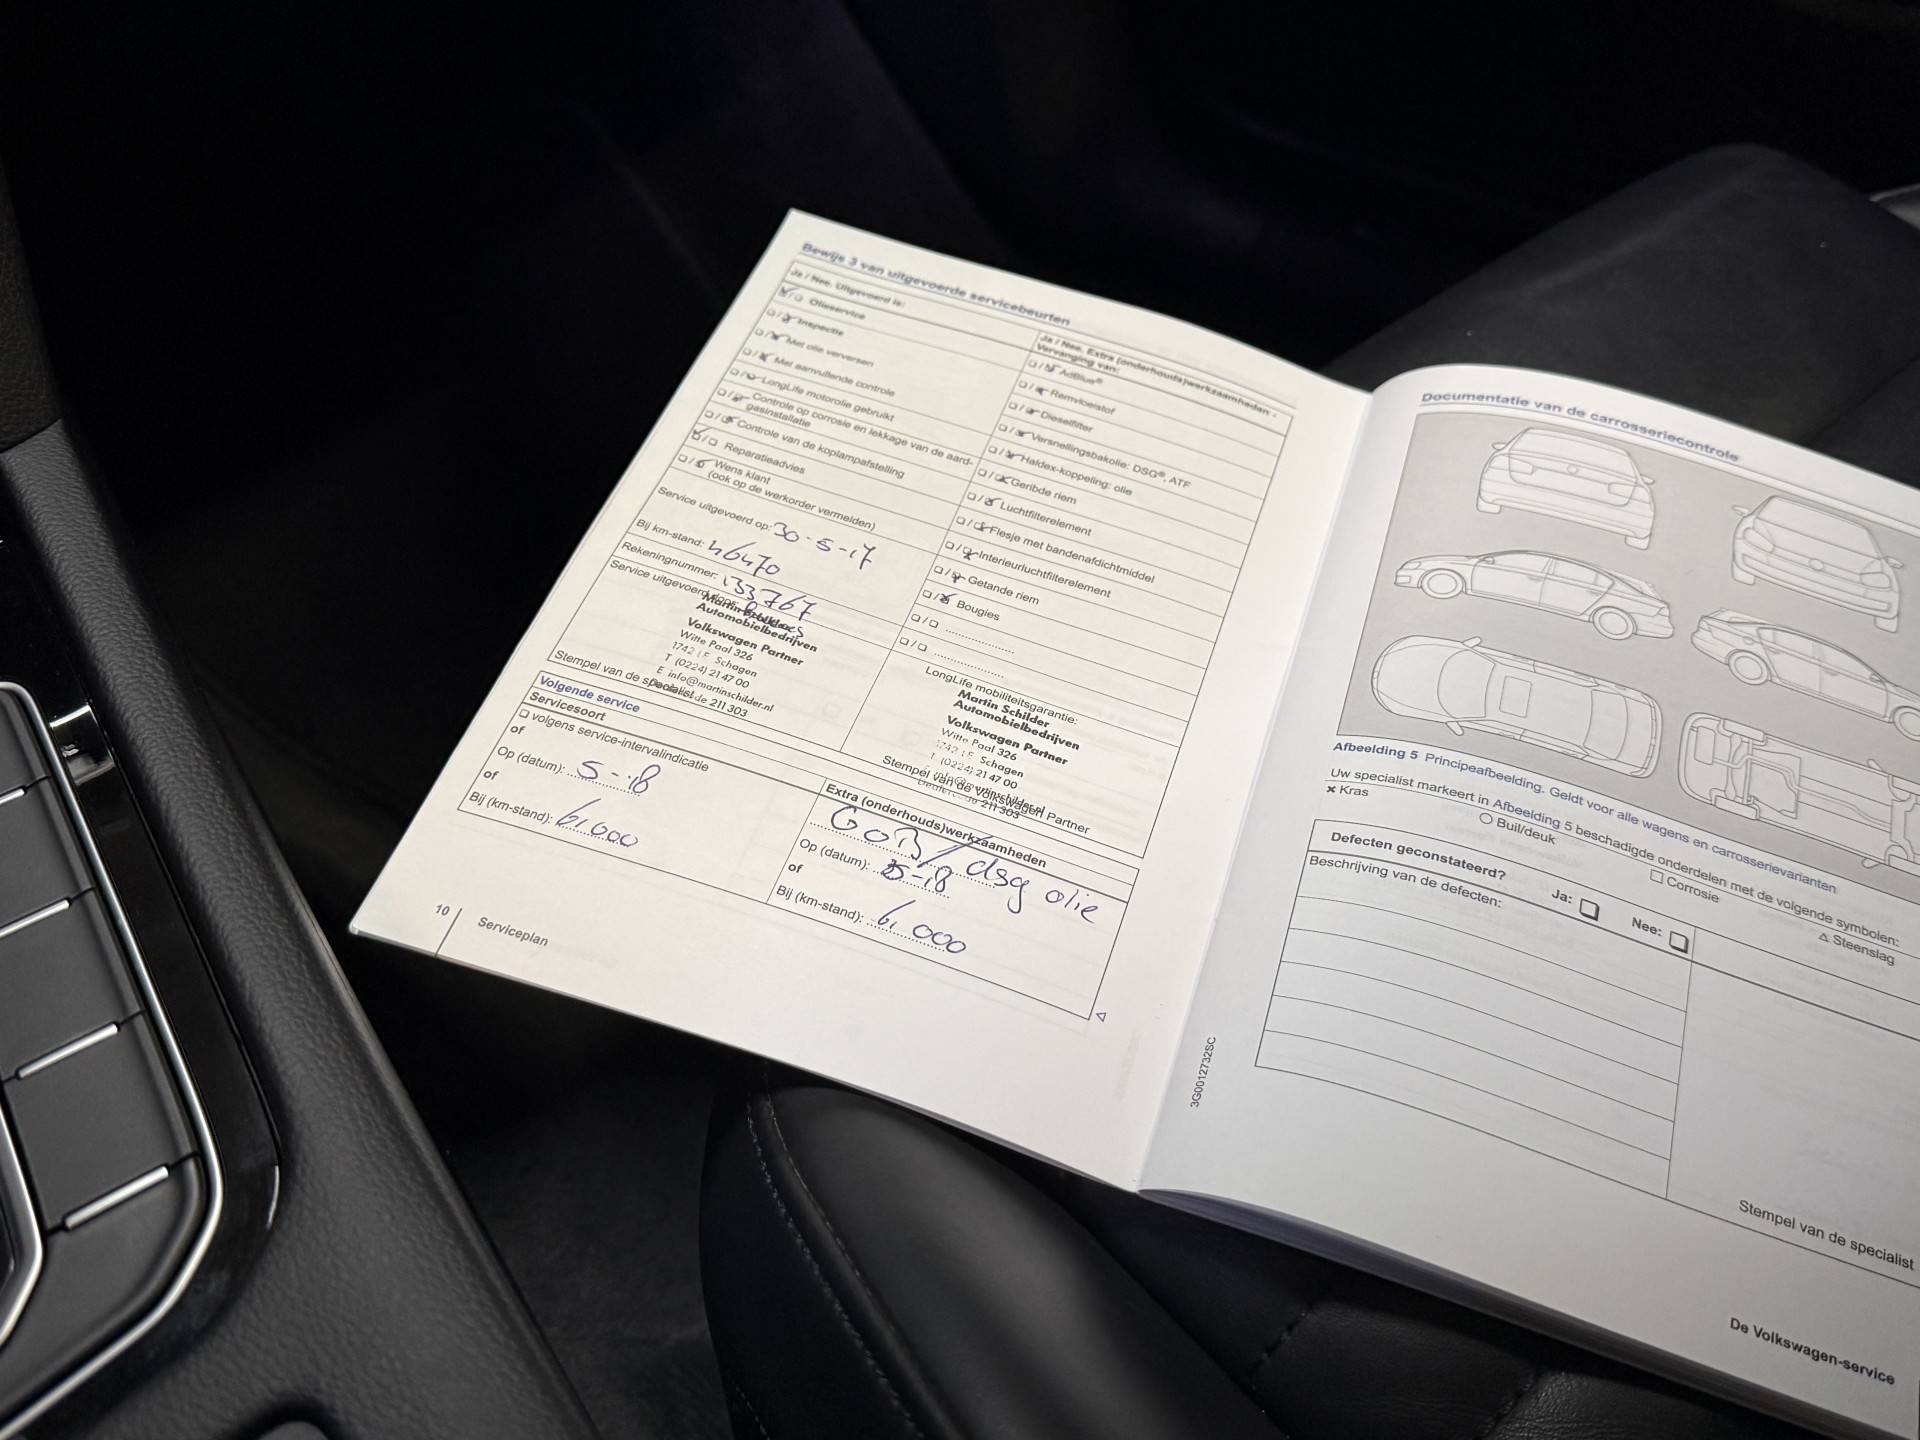 Bewijs 3 van uitgevoerde servicebeurten
Ja / Nee. Uitgevoerd is:
Olieservice
Inspectie
Met olie verversen
Met aanvullende controle
LongLife motorolie gebruikt
Controle op corrosie en lekkage van de aard-
gasinstallatie
Controle van de koplampafstelling
Reparatieadvies
Wens klant
(ook op de werkorder vermelden)
Service uitgevoerd op: 30-5-17
Bij km-stand: 46470
Rekeningnummer: 133767
Service uitgevoerd door:
Automobielbedrijven
Volkswagen Partner
Witte Paal 326
1742 LE Schagen
T (0224) 21 47 00
E info@martinschilder.nl
211 303
Stempel van de specialist
Ja / Nee. Extra (onderhouds)werkzaamheden -
Vervanging van:
AdBlue®
Remvloeistof
Dieselfilter
Versnellingsbakolie: DSG®, ATF
Haldex-koppeling: olie
Geribde riem
Luchtfilterelement
Flesje met bandenafdichtmiddel
Interieurluchtfilterelement
Getande riem
Bougies
LongLife mobiliteitsgarantie:
Martin Schilder
Automobielbedrijven
Volkswagen Partner
Witte Paal 326
1742 LE Schagen
T (0224) 21 47 00
info@martinschilder.nl
211 303
Stempel van de Volkswagen Partner
Volgende service
Servicesoort
volgens service-intervalindicatie
of
Op (datum): 5-18
of
Bij (km-stand): 61.000
Extra (onderhouds)werkzaamheden
dsg olie
Op (datum): 5-18
of
Bij (km-stand): 61.000
10
Serviceplan
Documentatie van de carrosseriecontrole
Afbeelding 5 Principeafbeelding. Geldt voor alle wagens en carrosserievarianten
Uw specialist markeert in Afbeelding 5 beschadigde onderdelen met de volgende symbolen:
× Kras
○ Buil/deuk
□ Corrosie
△ Steenslag
Defecten geconstateerd?
Ja:
Nee:
Beschrijving van de defecten:
Stempel van de specialist
3G0012732SC
De Volkswagen-service